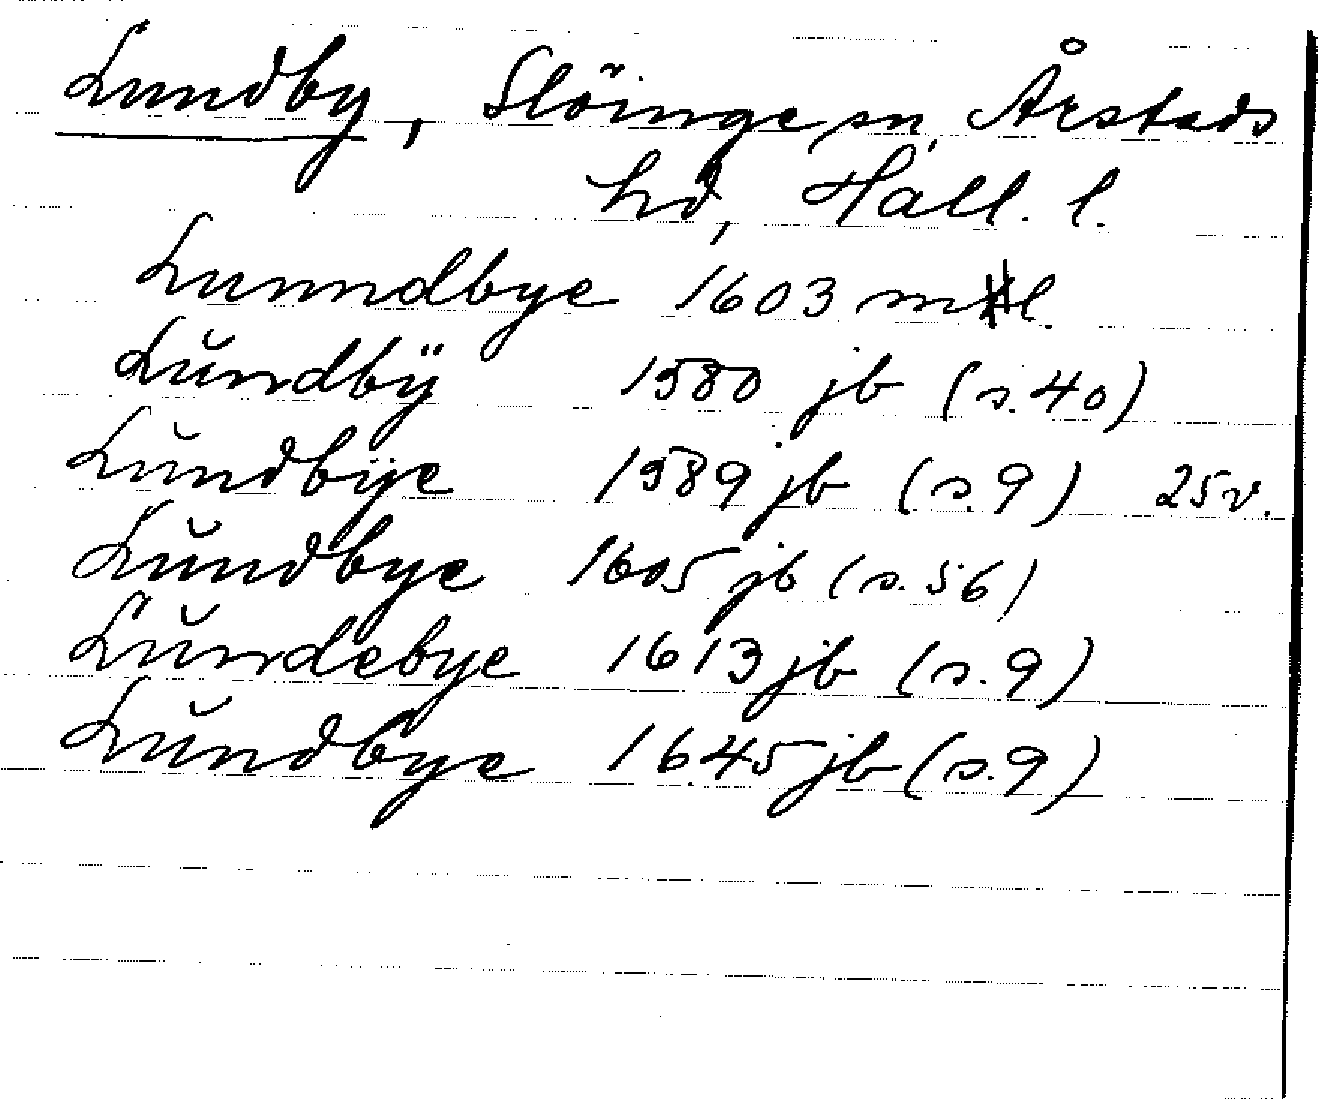 Lundby, Slöinge sn, Årstads
hd, Hall. l.
Lunndbye 1603 mtl.
Lŭndbÿ 1580 jb (s.40)
Lŭndbÿe 1589 jb (s.9) 25v.
Lŭndbye 1605 jb (s.56)
Lŭndebye 1613 jb (s.9)
Lŭndbye 1645 jb (s.9)